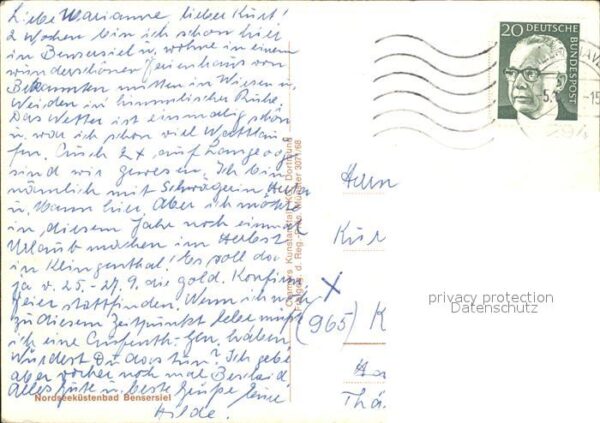 Liebe Marianne, lieber Kurt!
2 Wochen bin ich schon hier
in Bensersiel u. wohne in einem
wunderschönen Ferienhaus von
Bekannten mitten in Wiesen u.
Weiden in himmlischer Ruhe.
Das Wetter ist einmalig schön
u. war ich schon viel Wattlau-
fen. Auch 2x auf Langeoog
sind wir gewesen. Ich bin
nämlich mit Schwägerin
u. Mann hier. Aber ich möchte
in diesem Jahr noch einmal
Urlaub machen im Herbst
in Klingenthal. Es soll doch
ja v. 25. - 27. 9. die gold. Konfirm
feier stattfinden. Wenn ich noch
zu diesem Zeitpunkt lebe müßt
ich eine Aufenth.-Gen. haben.
Würdest Du das tun? Ich gebe
aber vorher noch mal Bescheid
Alles Gute u. beste Grüße Eure
Hilde.
Nordseeküstenbad Bensersiel
Cramers Kunstanstalt KG, Dortmund
Freigeg. d. Reg.-Präs. Münster 3071/68
20 DEUTSCHE
BUNDESPOST
Herrn
Kur
x
(965) K
Ha
Thü.
privacy protection
Datenschutz